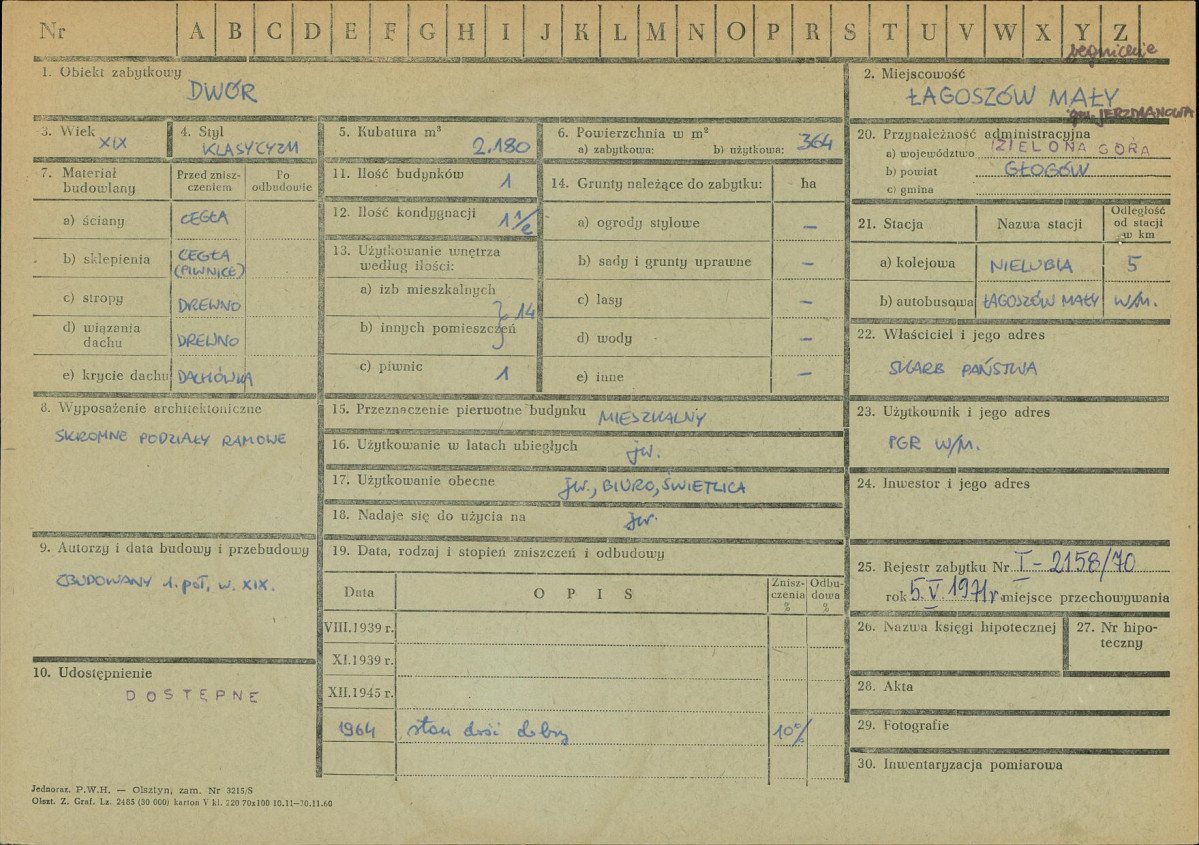 Nr A B C D E F G H I J K L M N O P R S T U V W X Y Z
1. Obiekt zabytkowy
DWÓR
2. Miejscowość
ŁAGOSZÓW MAŁY
gm. JERZMANOWA
3. Wiek
XIX
4. Styl
KLASYCYZM
5. Kubatura m³
2.180
6. Powierzchnia w m²
a) zabytkowa: b) użytkowa: 364
7. Materiał budowlany
Przed zniszczeniem
Po odbudowie
a) ściany CEGŁA
b) sklepienia CEGŁA (PIWNICE)
c) stropy DREWNO
d) wiązania dachu DREWNO
e) krycie dachu DACHÓWKA
8. Wyposażenie architektoniczne
SKROMNE PODZIAŁY RAMOWE
9. Autorzy i data budowy i przebudowy
ZBUDOWANY 1. poł, w. XIX.
10. Udostępnienie
DOSTĘPNE
11. Ilość budynków 1
12. Ilość kondygnacji 1 1/2
13. Użytkowanie wnętrza
według ilości:
a) izb mieszkalnych
} 14
b) innych pomieszczeń
c) piwnic 1
14. Grunty należące do zabytku: ha
a) ogrody stylowe –
b) sady i grunty uprawne –
c) lasy –
d) wody –
e) inne –
15. Przeznaczenie pierwotne budynku MIESZKALNY
16. Użytkowanie w latach ubiegłych jw.
17. Użytkowanie obecne jw., BIURO, ŚWIETLICA
18. Nadaje się do użycia na jw.
19. Data, rodzaj i stopień zniszczeń i odbudowy
Data OPIS Zniszczenia % Odbudowa %
VIII.1939 r.
XI.1939 r.
XII.1945 r.
1964 stan dość dobry 10%
20. Przynależność administracyjna
a) województwo ZIELONA GÓRA
b) powiat GŁOGÓW
c) gmina
21. Stacja Nazwa stacji Odległość od stacji w km
a) kolejowa NIELUBIA 5
b) autobusowa ŁAGOSZÓW MAŁY W/M.
22. Właściciel i jego adres
SKARB PAŃSTWA
23. Użytkownik i jego adres
PGR W/M.
24. Inwestor i jego adres
25. Rejestr zabytku Nr I-2158/70
rok 5.V.1971r. miejsce przechowywania
26. Nazwa księgi hipotecznej
27. Nr hipoteczny
28. Akta
29. Fotografie
30. Inwentaryzacja pomiarowa
Jednoraz. P.W.H. — Olsztyn, zam. Nr 3215/S
Olszt. Z. Graf. Lz. 2485 (30 000) karton V kl. 220 70x100 10.11—30.11.60